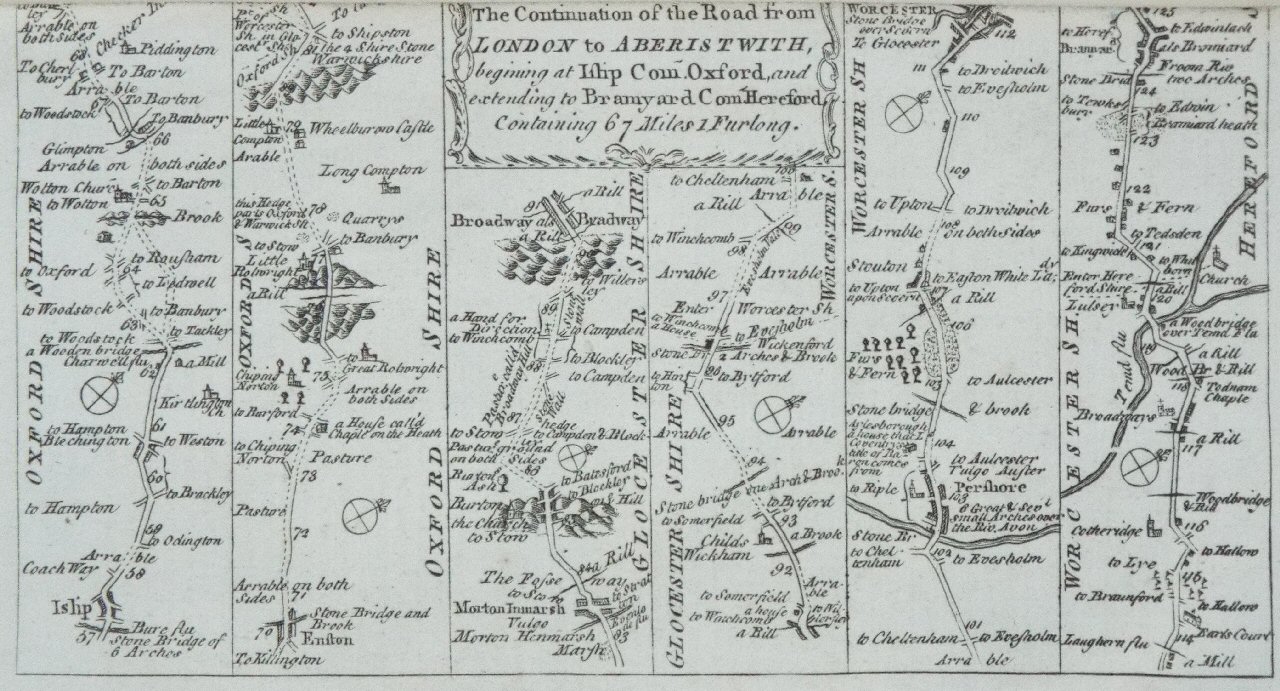 The Continuation of the Road from
LONDON to ABERISTWITH,
begining at Islip Com. Oxford, and
extending to Bramyard Com. Hereford
Containing 67 Miles 1 Furlong.
Arrable on
both sides
68
Piddington
To Barton
Arra ble
67
To Barton
to Woodstock
To Banbury
Glimpton
66
Arrable on both sides
Wotton Church
to Barton
to Wotton
65
Brook
to Rousham
to Oxford
64
to Ledwell
to Woodstock
to Banbury
63
to Tackley
to Woodstock
a Wooden bridge
Charwell flu
a Mill
62
Kirtlington
Ch
61
to Hampton
Blechington
to Weston
60
to Brackley
to Hampton
59
to Odington
Arra ble
Coach Way
58
Islip
57
Bure flu
Stone Bridge of
6 Arches
OXFORD SHIRE
to Shipston
the 4 Shire Stone
Warwickshire
Oxford Sh
Little
Compton
79
Wheelburow Castle
Arable
Long Compton
this Hedge
parts Oxford
& Warwick Sh
78
Quarrys
to Banbury
to Stow
Little
Rolwright
77
a Rill
OXFORD S
to
Great Rolwright
Chiping
Norton
75
Arrable on
both Sides
to Barford
74
a House call'd
Chaple on the Heath
to Chiping
Norton
Pasture
73
Pasture
72
Arrable on both
Sides
71
Stone Bridge and
Brook
70
Enston
To Killington
OXFORD SHIRE
91
a Rill
Broadway als
Bradway
a Rill
to Willersley
89
a Hand for
Direction
to Winchcomb
to Campden
to Blockley
to Campden
Pastur call'd
Broadway Hill
Stone
Wall
87
hedge
to Stow
to Campden & Block
Pastur ground
on both Sides
86
to Battsford
to Blockley
on a Hill
Burton
the Church
to Stow
a Rill
The Fosse way
to Stow
Morton Inmarsh
Vulgo
Morton Henmarsh
Marsh
83
GLOCESTER SHIRE
100
to Cheltenham
a Rill
Arra ble
99
to Winchcomb
98
Arrable
Arrable
Evesholm Vale
97
Enter
Worcester Sh
to Winchcomb
a House
to Evesholm
to Wickenford
Stone Br
2 Arches & Brook
96
to Bytford
95
Arrable
Arrable
94
Stone bridge one Arch & Brook
to Bytford
to Somerfield
93
Childs
Wickham
a Brook
92
to Somerfield
a house
to Winchcomb
a Rill
Arrable
GLOCESTER SHIRE
WORCESTER S.
WORCESTER
Stone Bridge
over Severn
To Glocester
112
111
to Droitwich
to Evesholm
110
109
to Upton
to Droitwich
108
Arrable
on both Sides
Stouton
to Easton White Lady
to Upton
upon Severn
a Rill
106
Furs
& Fern
105
to Aulcester
& brook
Stone bridge
Arlesborough
a house that L
Coventry's
title of Ba
ron comes
from
104
to Aulcester
Vulgo Auster
Pershore
to Riple
103
6 Great & Sev'l
small Arches over
the Riv. Avon
Stone Br
to Cheltenham
102
to Evesholm
101
to Cheltenham
to Evesholm
Arra ble
WORCESTER SH
125
to Edwinlach
to Heref
Bramyar
als Bromiard
Froom Riv
two Arches
Stone Brid
124
to Tewksbury
to Edwin
Bramiard heath
123
122
Furs & Fern
to Tedsden
to Kingwick
121
to Whitborn
Enter Here
ford Shire
a Rill
Church
Lulser
120
a Wood bridge
over Temd Flu
119
a Rill
Wood Br & Rill
118
Todnam
Chaple
Temd flu
Broadways
a Rill
117
Woodbridge
& Rill
Cotheridge
116
to Hallow
to Lye
115
to Braunford
to Hallow
Earls Court
Laughern flu
114
a Mill
WORCESTER SH.
HEREFORD S